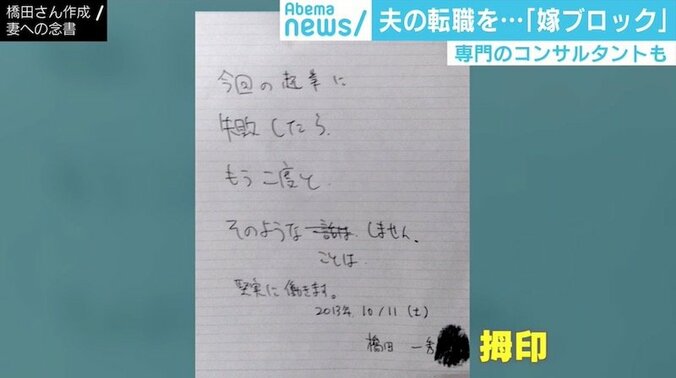 橋田さん作成/
妻への念書
Abema
news/
夫の転職を…「嫁ブロック」
専門のコンサルタントも
今回の起業に
失敗したら、
もう二度と
そのような 話は しません。
ことは
堅実に働きます。
2013年 10/11(土)
橋田 一秀
拇印